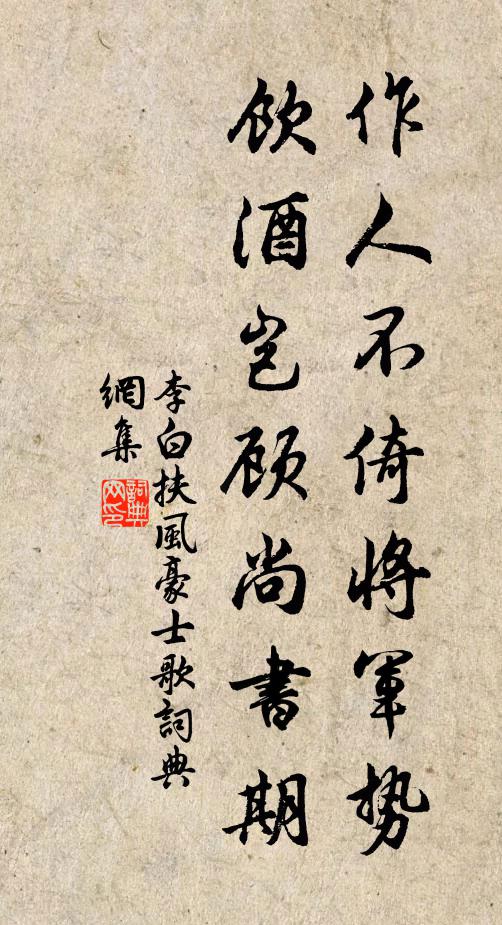 作人不倚將軍勢
飲酒豈顧尚書期
李白扶風豪士歌詞典
網集
詞典
网印